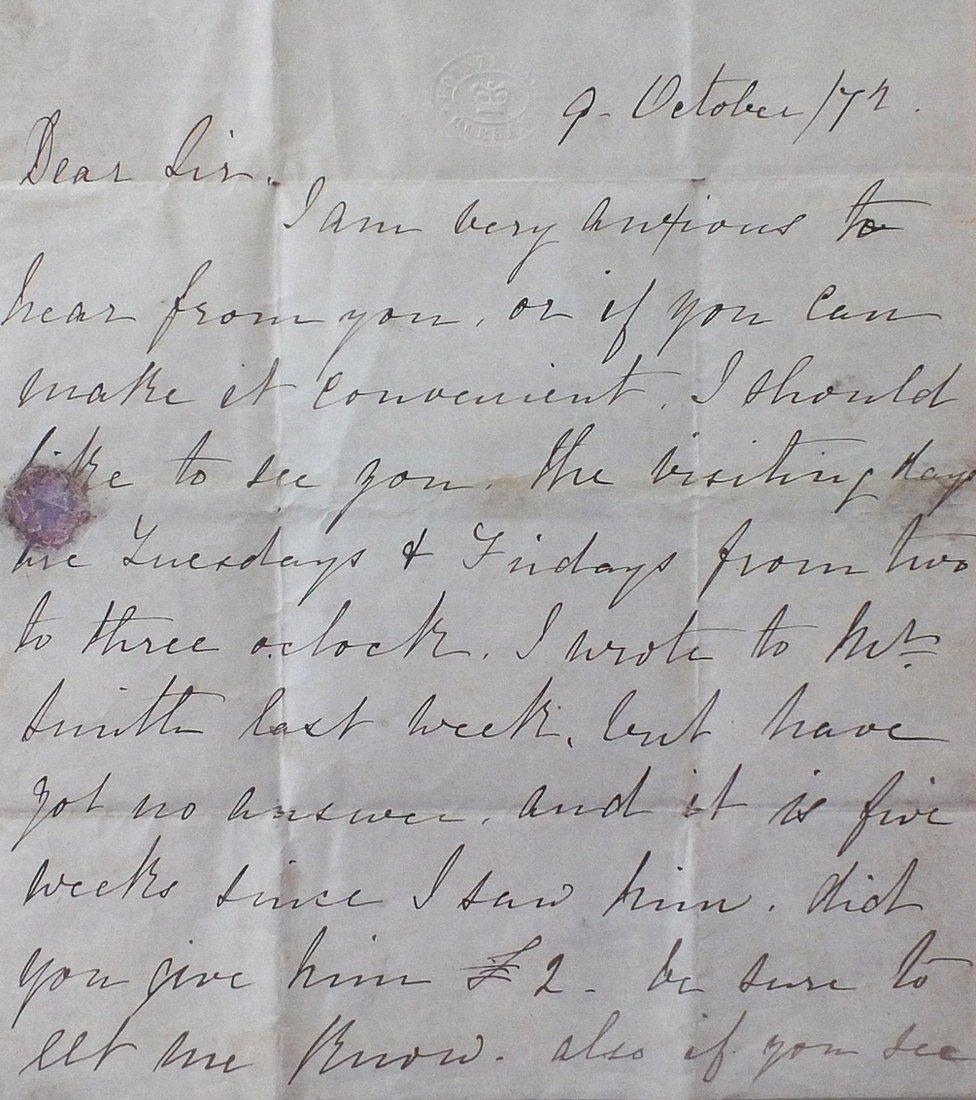 9 - October /72.
Dear Sir.
I am very anxious to
hear from you, or if you can
make it convenient. I should
like to see you. the visiting days
are Tuesdays & Fridays from two
to three oclock. I wrote to Mr
Smith last week, but have
got no answer, and it is five
weeks since I saw him. did
you give him £2 - be sure to
let me know. also if you see